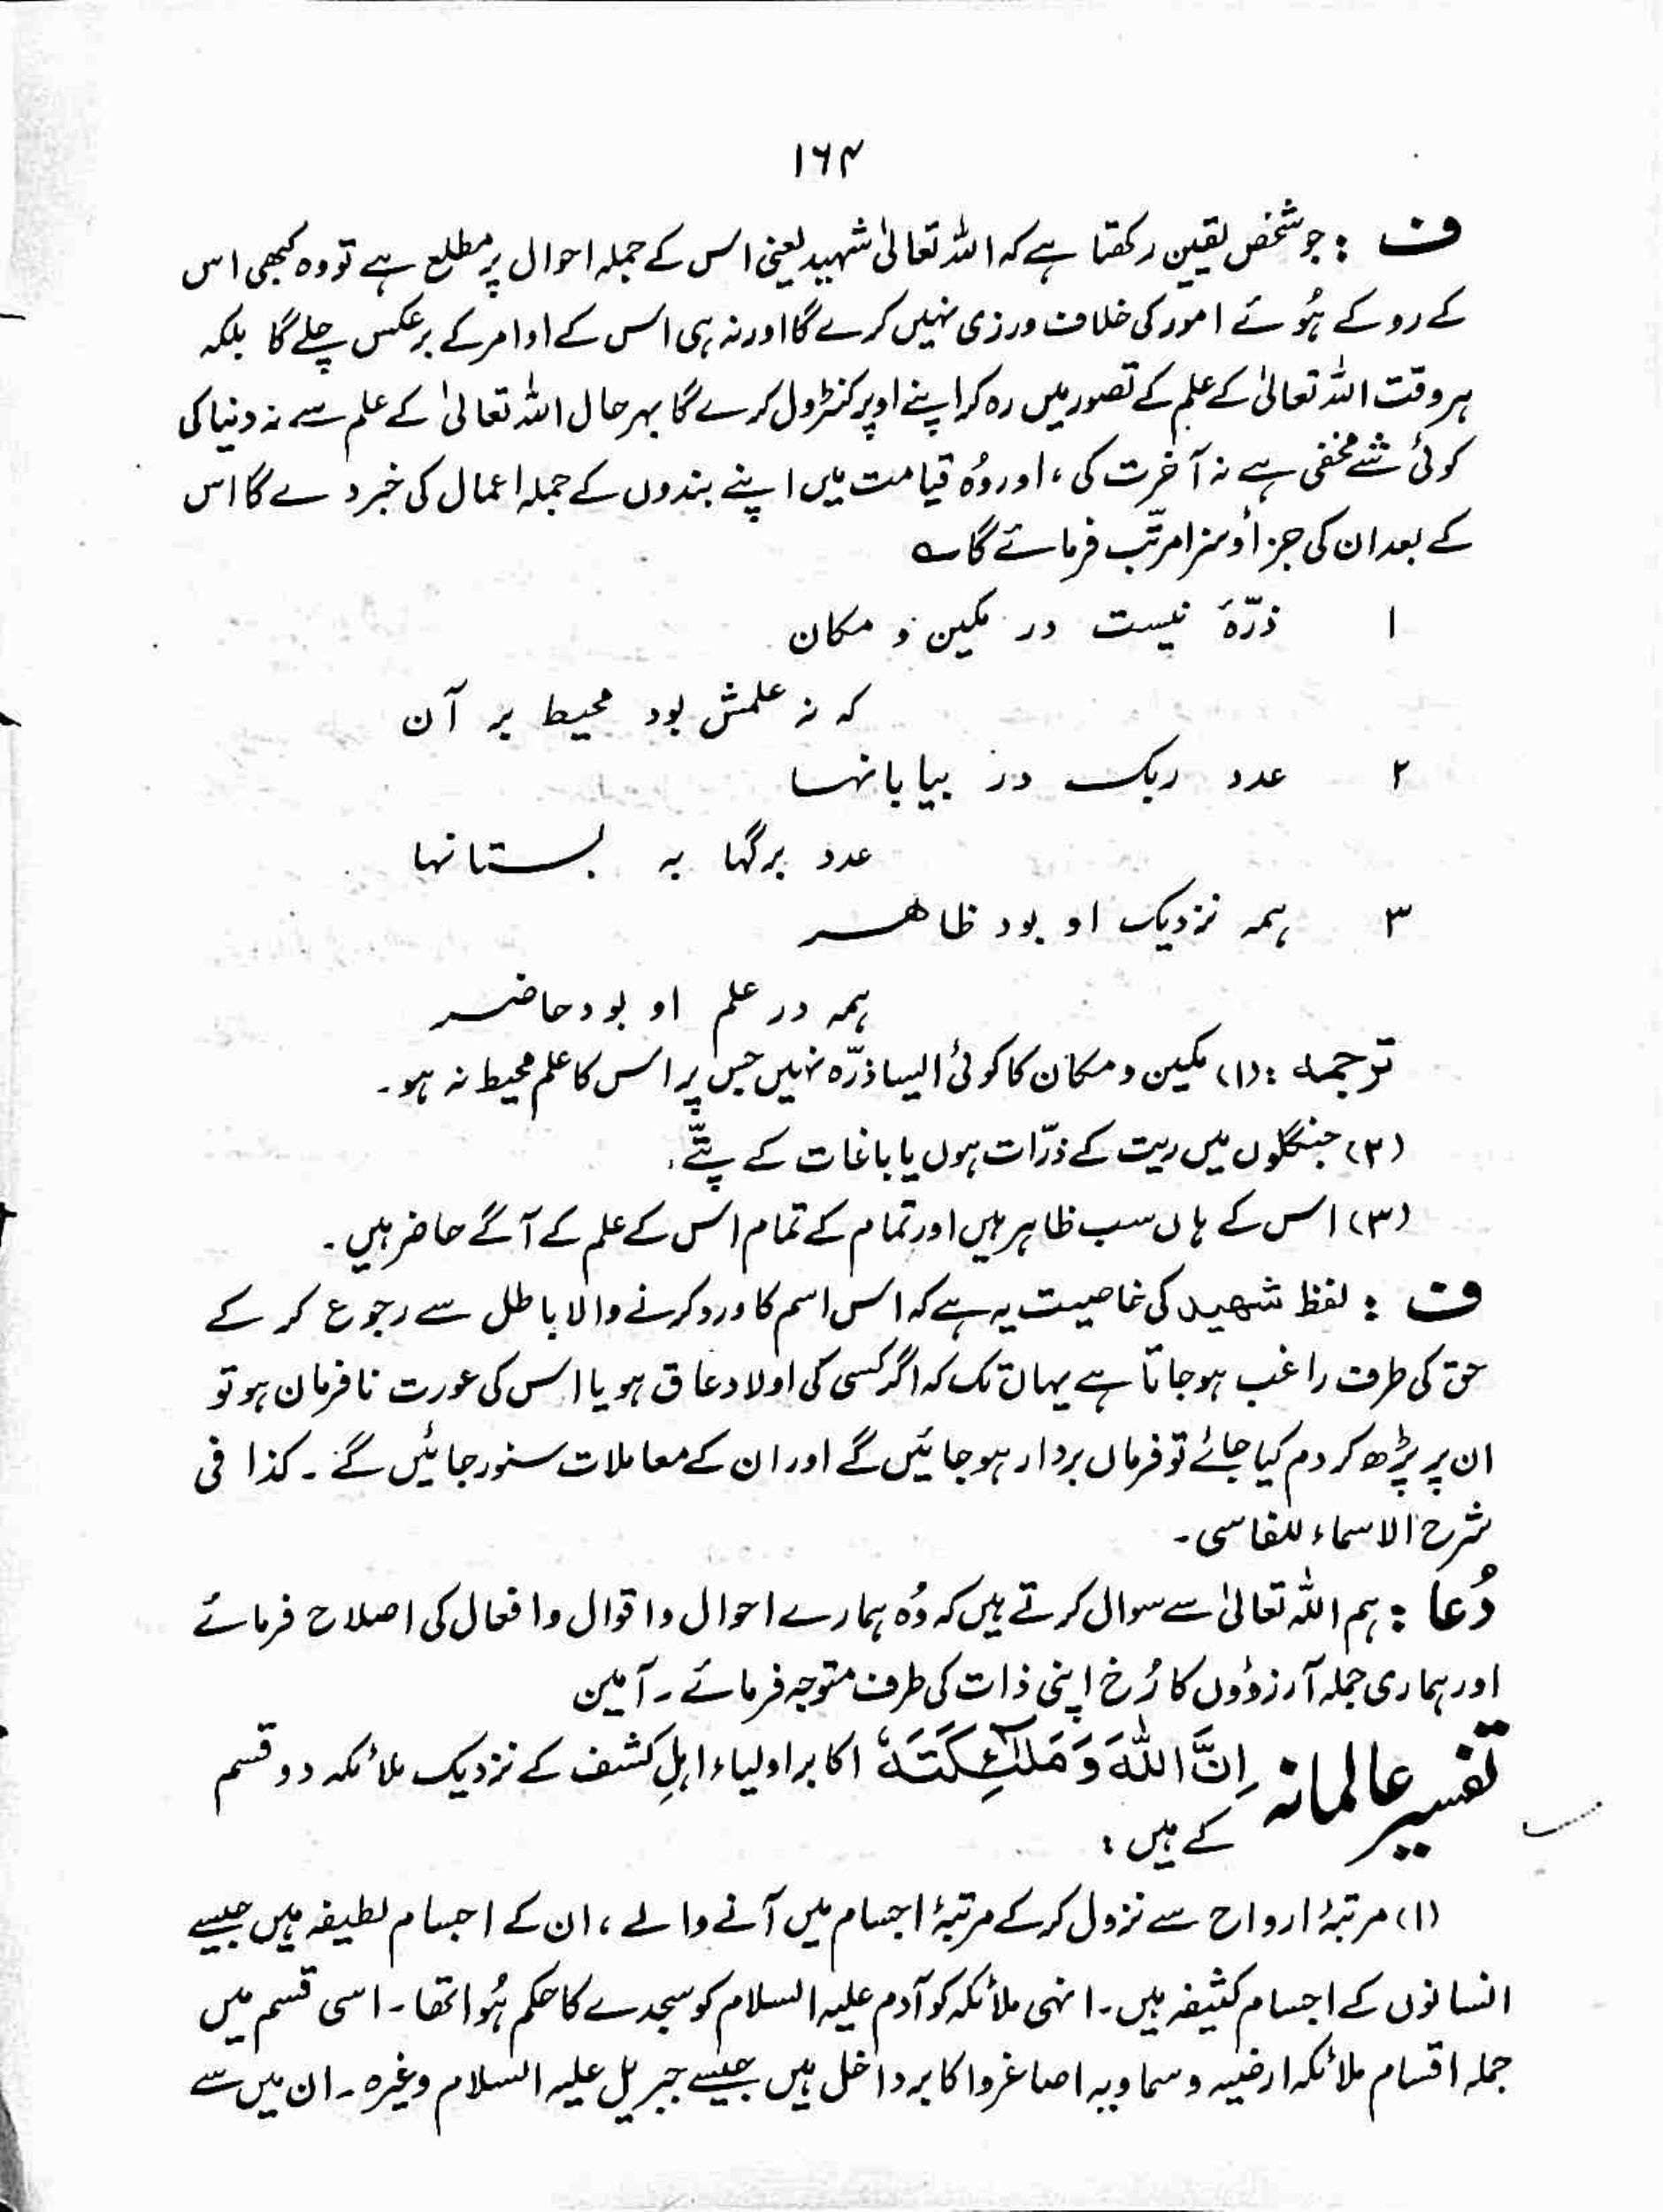 ۱۶۴
ف : جو شخص یقین رکھتا ہے کہ اللہ تعالیٰ شہید یعنی اس کے جملہ احوال پر مطلع ہے تو وہ کبھی اس
کے روکے ہُوئے امور کی خلاف ورزی نہیں کرے گا اور نہ ہی اس کے اوامر کے برعکس چلے گا بلکہ
ہر وقت اللہ تعالیٰ کے علم کے تصور میں رہ کر اپنے اوپر کنٹرول کرے گا بہرحال اللہ تعالیٰ کے علم سے نہ دنیا کی
کوئی شے مخفی ہے نہ آخرت کی ، اور وُہ قیامت میں اپنے بندوں کے جملہ اعمال کی خبر دے گا اس
کے بعد ان کی جزأ و سزا مرتّب فرمائے گا ؎
۱ ذرّۂ نیست در مکین و مکان
کہ نہ علمش بود محیط بر آن
۲ عدد ریک در بیابانہا
عدد برگہا بہ بستانہا
۳ ہمہ نزدیک او بود ظاھر
ہمہ در علم او بود حاضر
ترجمہ : (۱) مکین و مکان کا کوئی ایسا ذرّہ نہیں جس پر اس کا علم محیط نہ ہو۔
(۲) جنگلوں میں ریت کے ذرّات ہوں یا باغات کے پتّے،
(۳) اس کے ہاں سب ظاہر ہیں اور تمام کے تمام اس کے علم کے آگے حاضر ہیں۔
ف : لفظ شھید کی خاصیت یہ ہے کہ اس اسم کا ورد کرنے والا باطل سے رجوع کر کے
حق کی طرف راغب ہو جاتا ہے یہاں تک کہ اگر کسی کی اولاد عاق ہو یا اس کی عورت نافرمان ہو تو
ان پر پڑھ کر دم کیا جائے تو فرماں بردار ہو جائیں گے اور ان کے معاملات سنور جائیں گے ۔ کذا فی
شرح الاسماء للفاسی۔
دُعا : ہم اللہ تعالیٰ سے سوال کرتے ہیں کہ وُہ ہمارے احوال و اقوال و افعال کی اصلاح فرمائے
اور ہماری جملہ آرزؤوں کا رُخ اپنی ذات کی طرف متوجہ فرمائے ۔ آمین
تفسیر عالمانہ اِنَّ اللّٰہَ وَمَلٰٓئِکَتَہٗ اکابر اولیاء اہلِ کشف کے نزدیک ملائکہ دو قسم
کے ہیں :
(۱) مرتبۂ ارواح سے نزول کر کے مرتبۂ اجسام میں آنے والے ، ان کے اجسام لطیفہ ہیں جیسے
انسانوں کے اجسام کثیفہ ہیں ۔ انہی ملائکہ کو آدم علیہ السلام کو سجدے کا حکم ہُوا تھا ۔ اسی قسم میں
جملہ اقسام ملائکہ ارضیہ و سماویہ اصاغر و اکابر داخل ہیں جیسے جبریل علیہ السلام وغیرہ ۔ ان میں سے